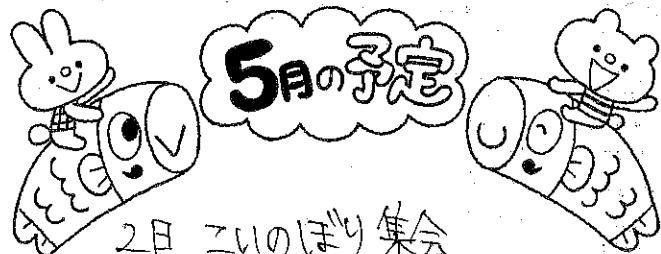 5月の予定
2日 こいのぼり集会